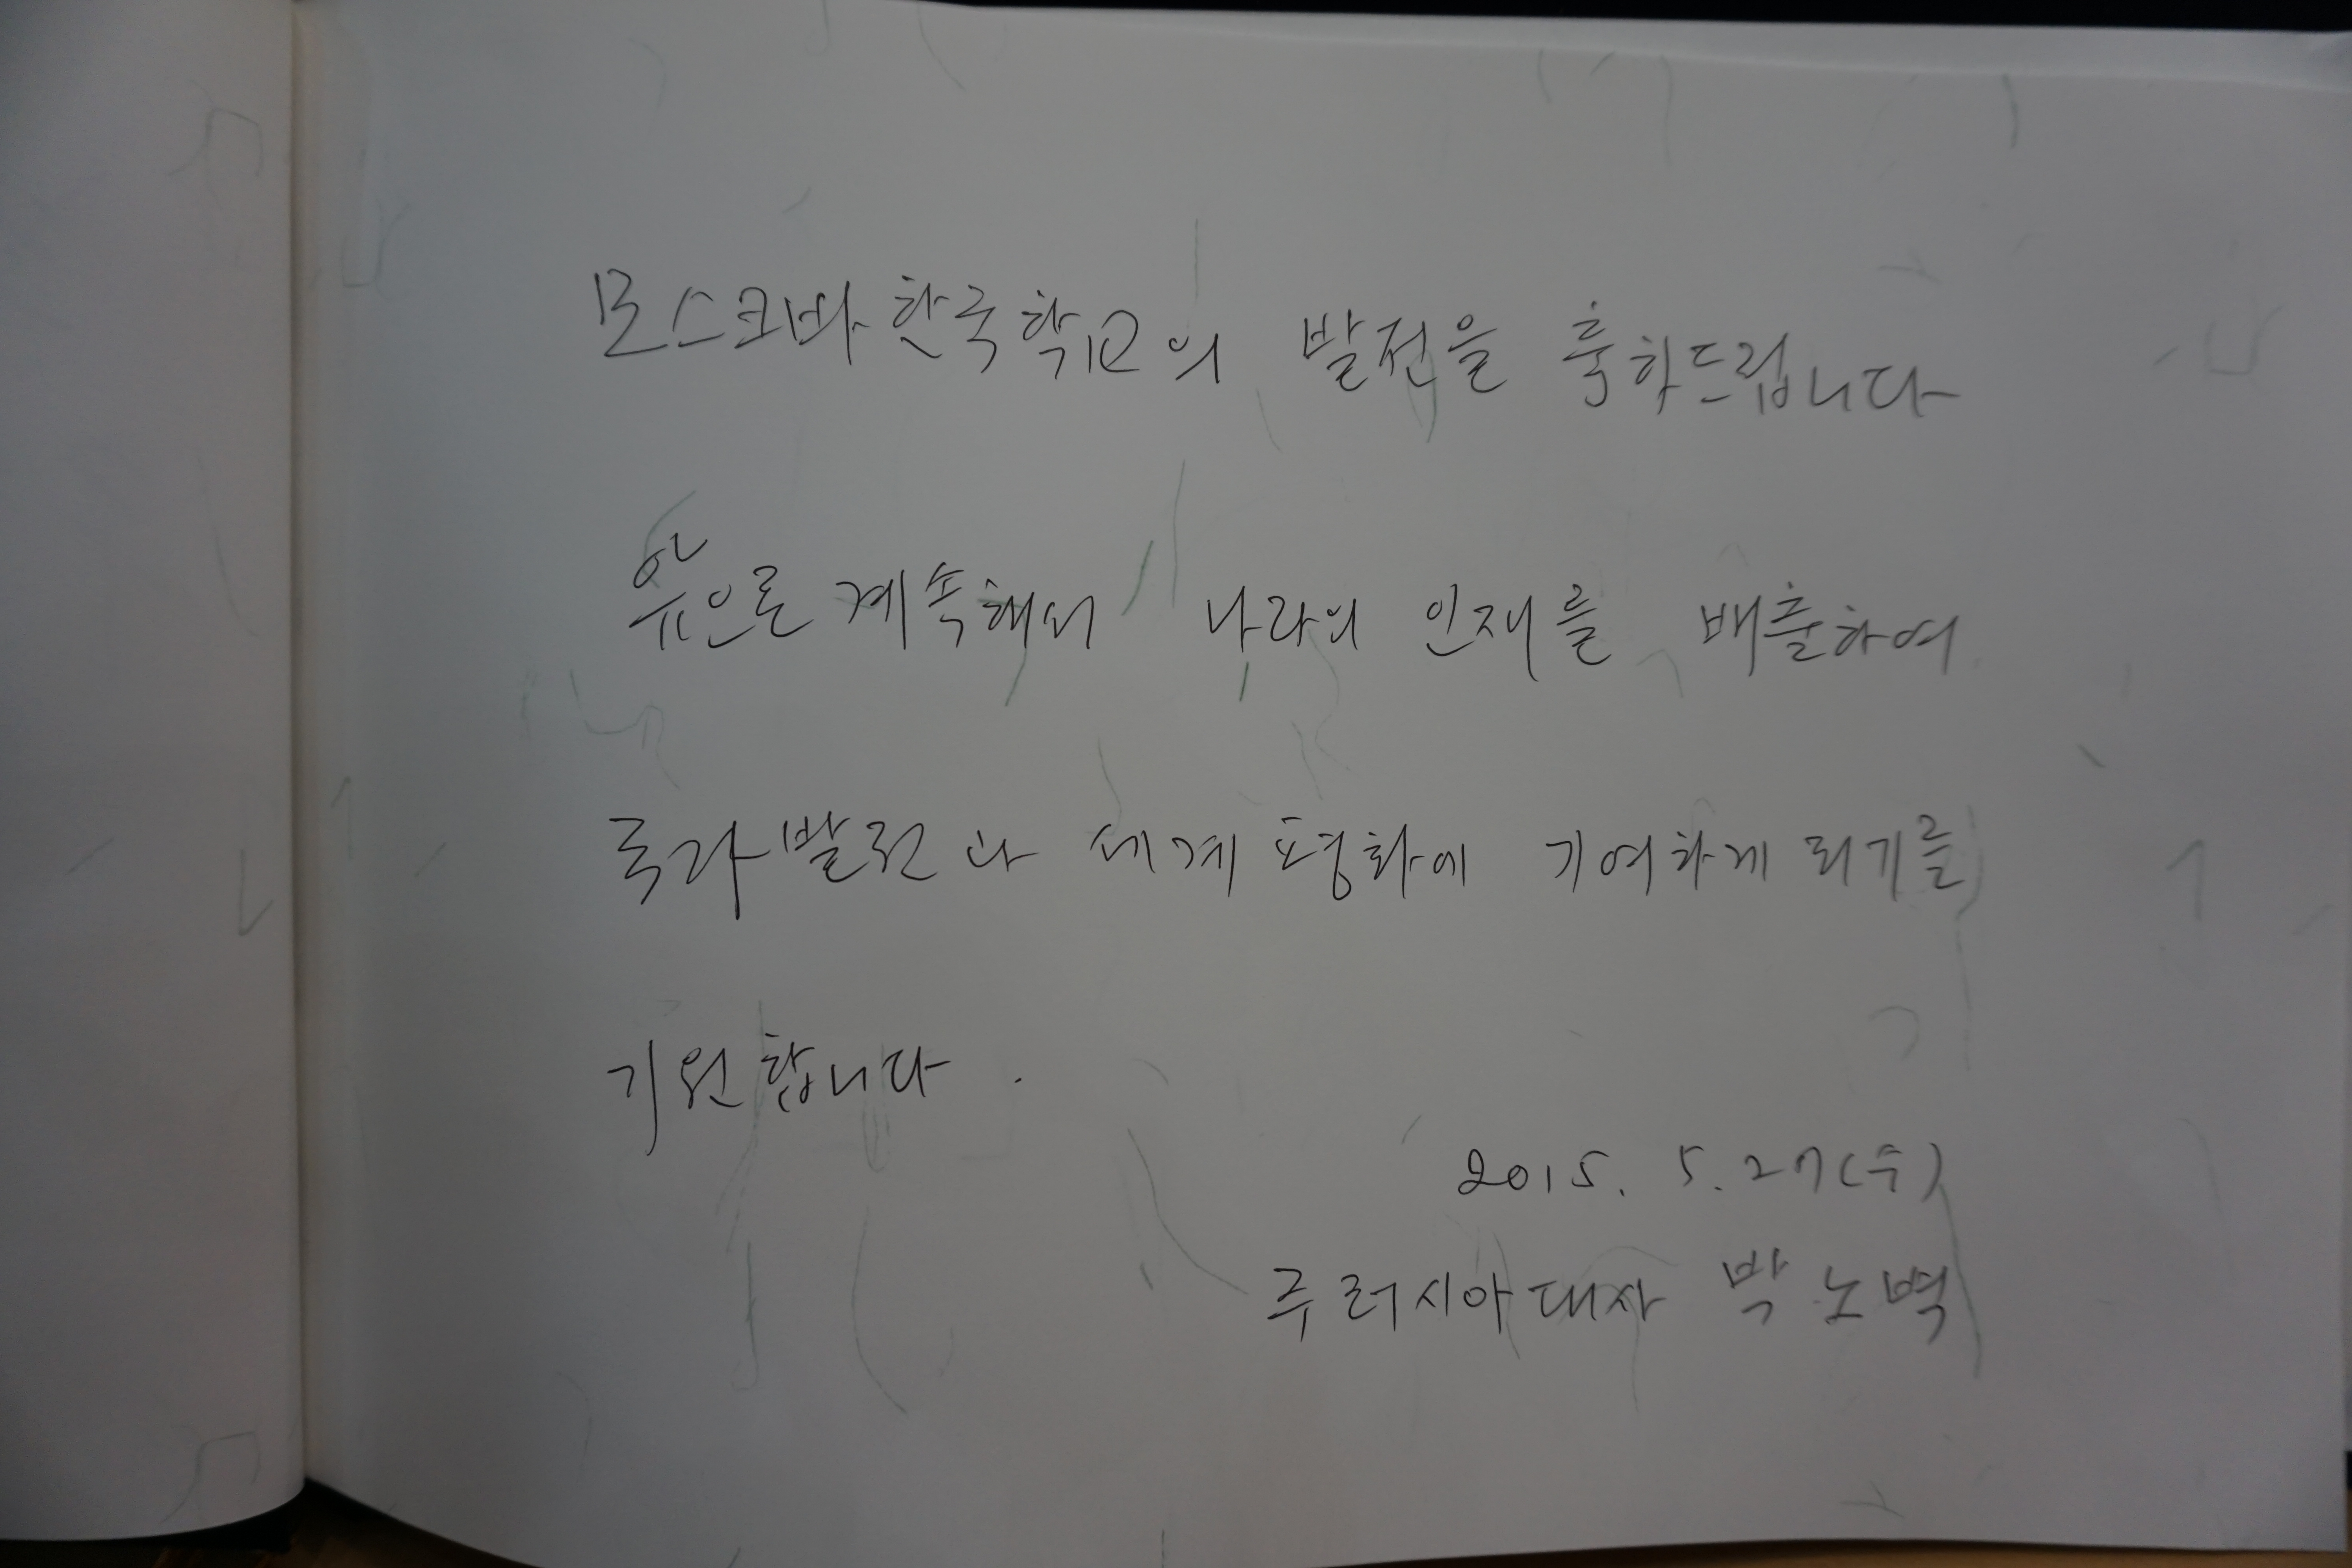 모스크바 한국학교의 발전을 축하드립니다
앞으로 계속해서 나라의 인재를 배출하여
국가발전과 세계평화에 기여하게 되기를
기원합니다.
2015. 5. 27(수)
주러시아대사 박노벽